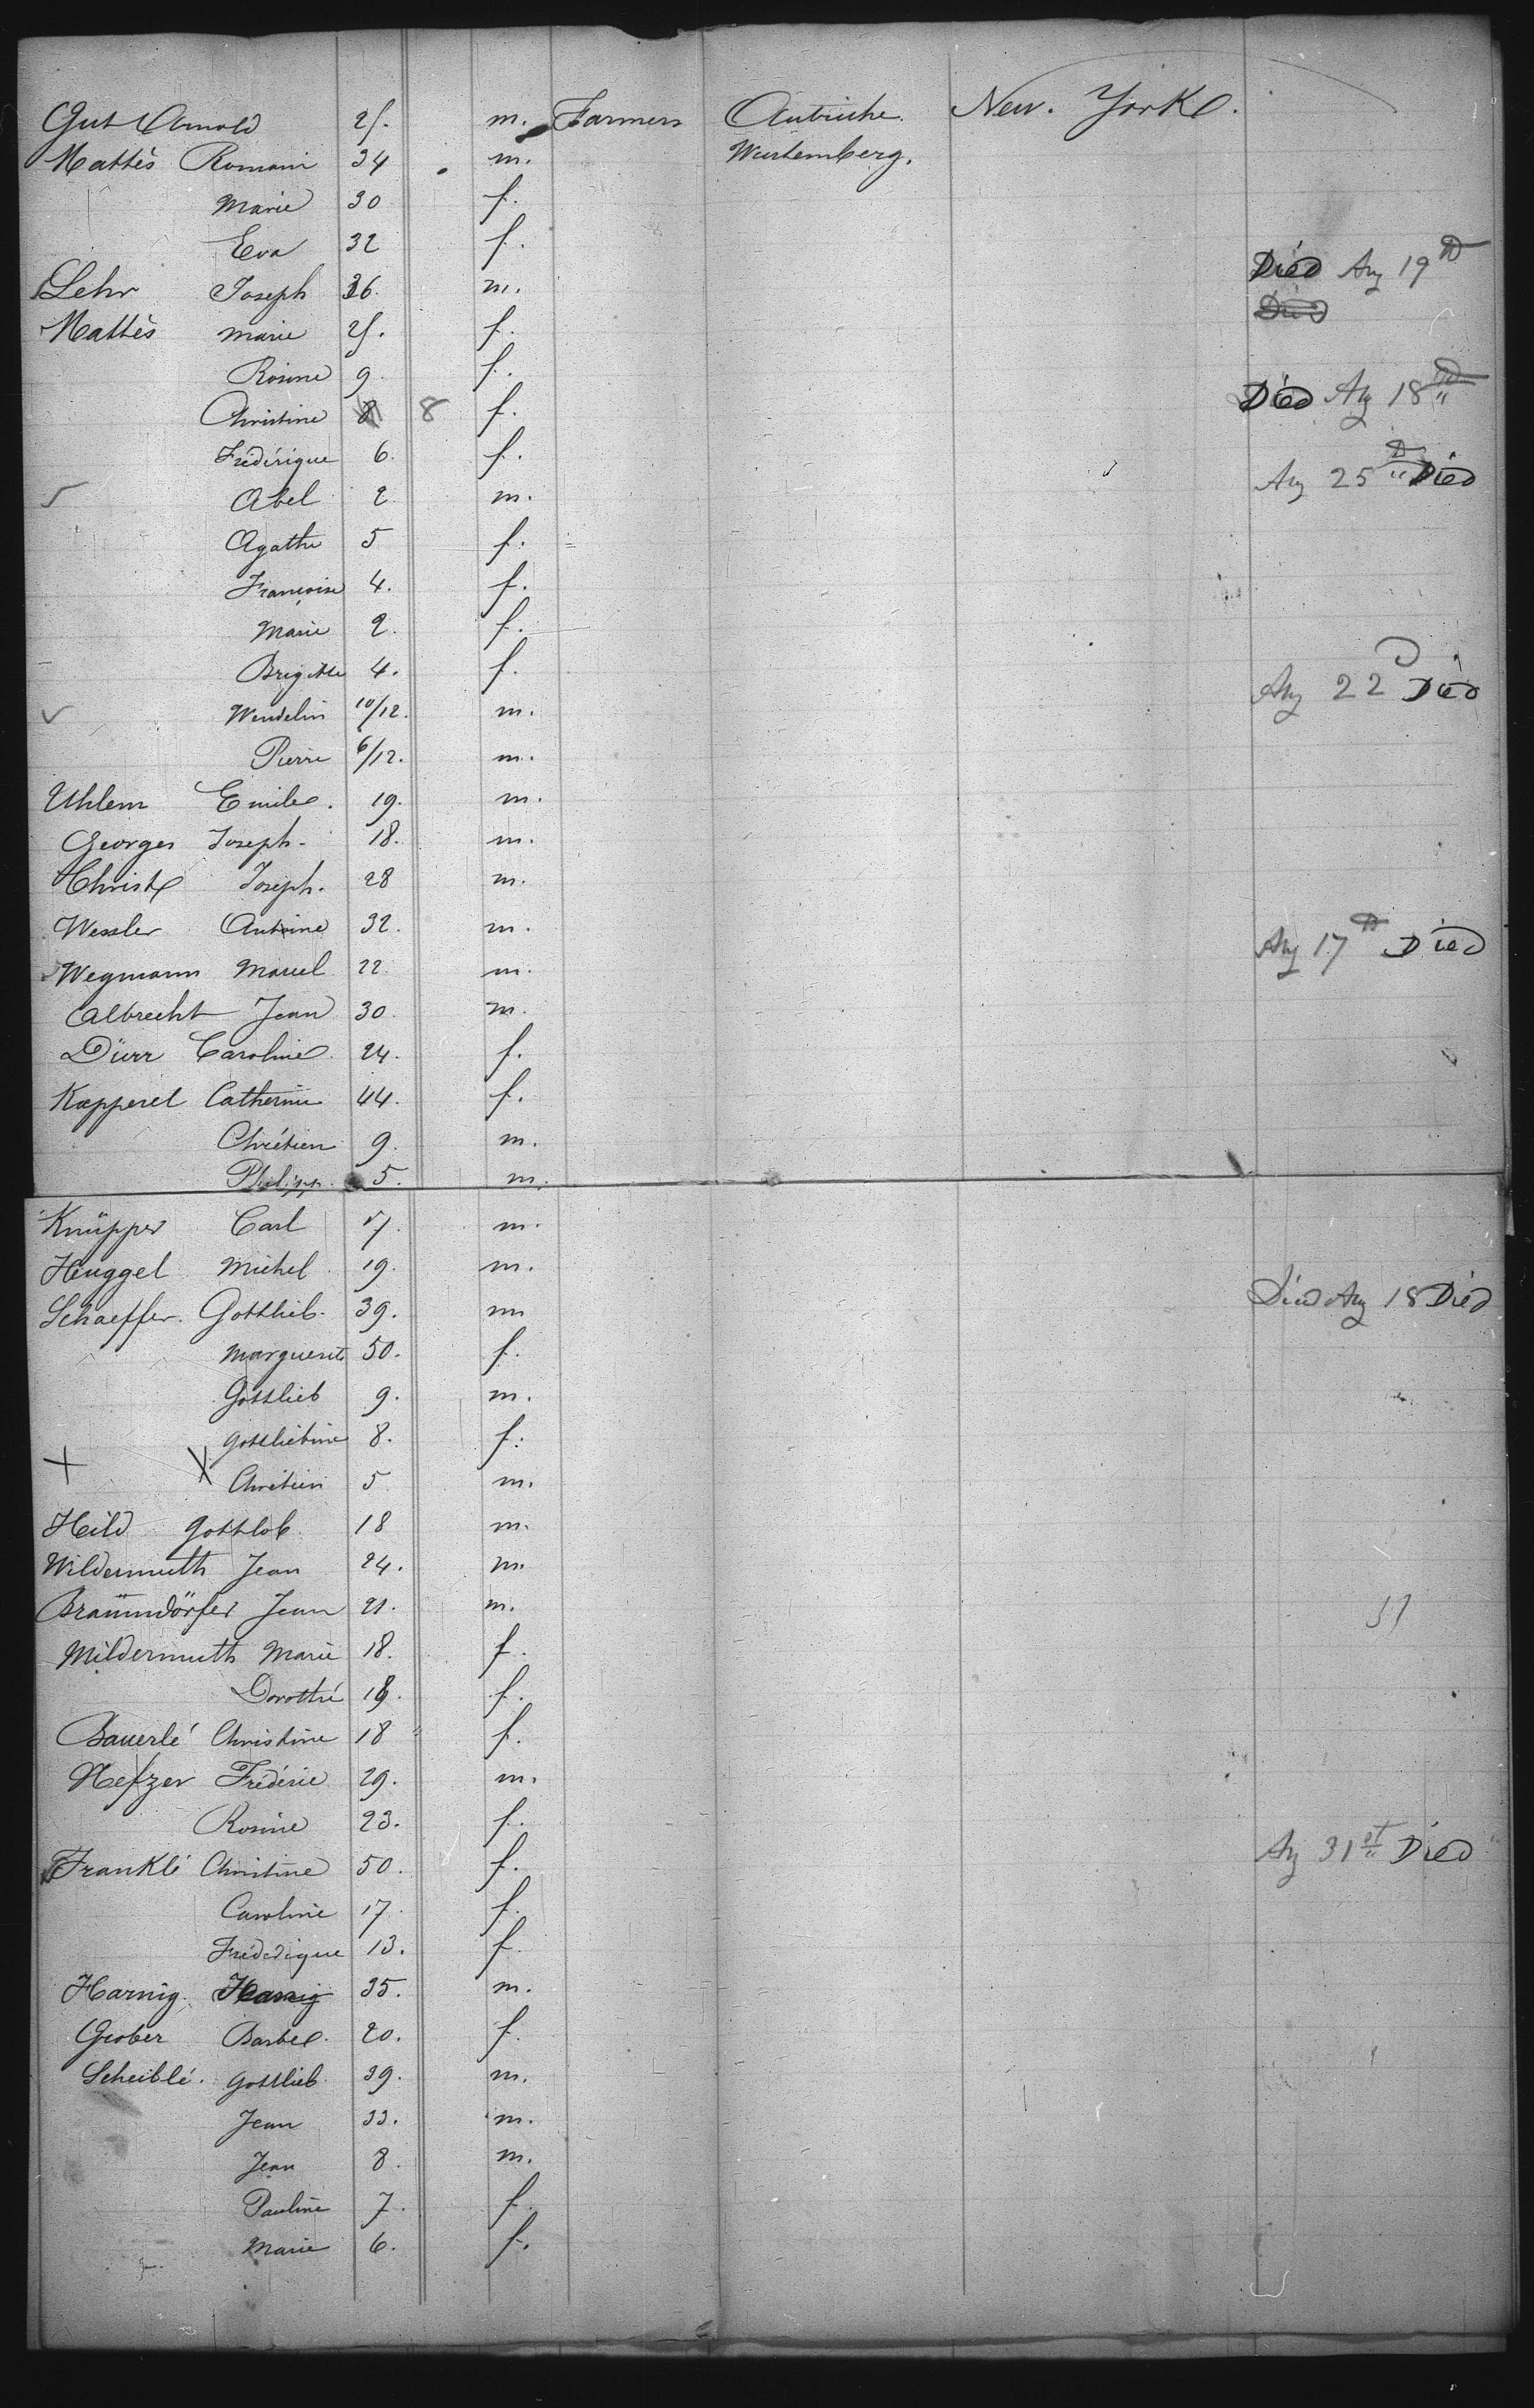 Gut Arnold 25. m. Farmers Autriche. New. York.
Mattès Romain 34 m. Wurtemberg.
Marie 30 f.
Eva 32 f. Died Aug 19
Lehr Joseph 36. m. Died
Mattès Marie 25. f.
Rosine 9 f.
Christine 8 8 f. Died Aug 18
Frédérique 6. f.
Abel 2 m. Aug 25 Died
Agathe 5 f.
Françoise 4. f.
Marie 2. f.
Brigitte 4. f.
Wendelin 10/12. m. Aug 22 Died
Pierre 6/12. m.
Uhlem Emile. 19. m.
Georges Joseph. 18. m.
Christ Joseph. 28 m.
Wessler Antoine 32. m. Aug 17 Died
Wegmann Marcel 22. m.
Albrecht Jean 30. m.
Dürr Caroline 24. f.
Kopperel Catherine 44. f.
Chrétien 9. m.
Philipp. 5. m.
Knüpper Carl 17. m.
Heuggel Michel 19. m.
Schaeffer. Gottlieb. 39. m Died Aug 18 Died
Marguerite 50. f.
Gottlieb 9. m.
Gottliebine 8. f.
+ X Chrétien 5 m.
Heild Gottlob 18 m.
Wildermuth Jean 24. m.
Braünndörfer Jean 21. m.
Mildermuth Marie 18. f.
Dorothé f.
Bauerlé Christine 18 f.
Nefzer Fréderic 29. m.
Rosine 23. f.
Franklé Christine 50. f. Aug 31st Died
Caroline 17. f.
Fréderique 13. f.
Harnig. Harnig 35. m.
Grober Barbe. 20. f.
Scheiblé. Gottlieb 39. m.
Jean 33. m.
Jean 8. m.
Pauline 7. f.
Marie 6. f.